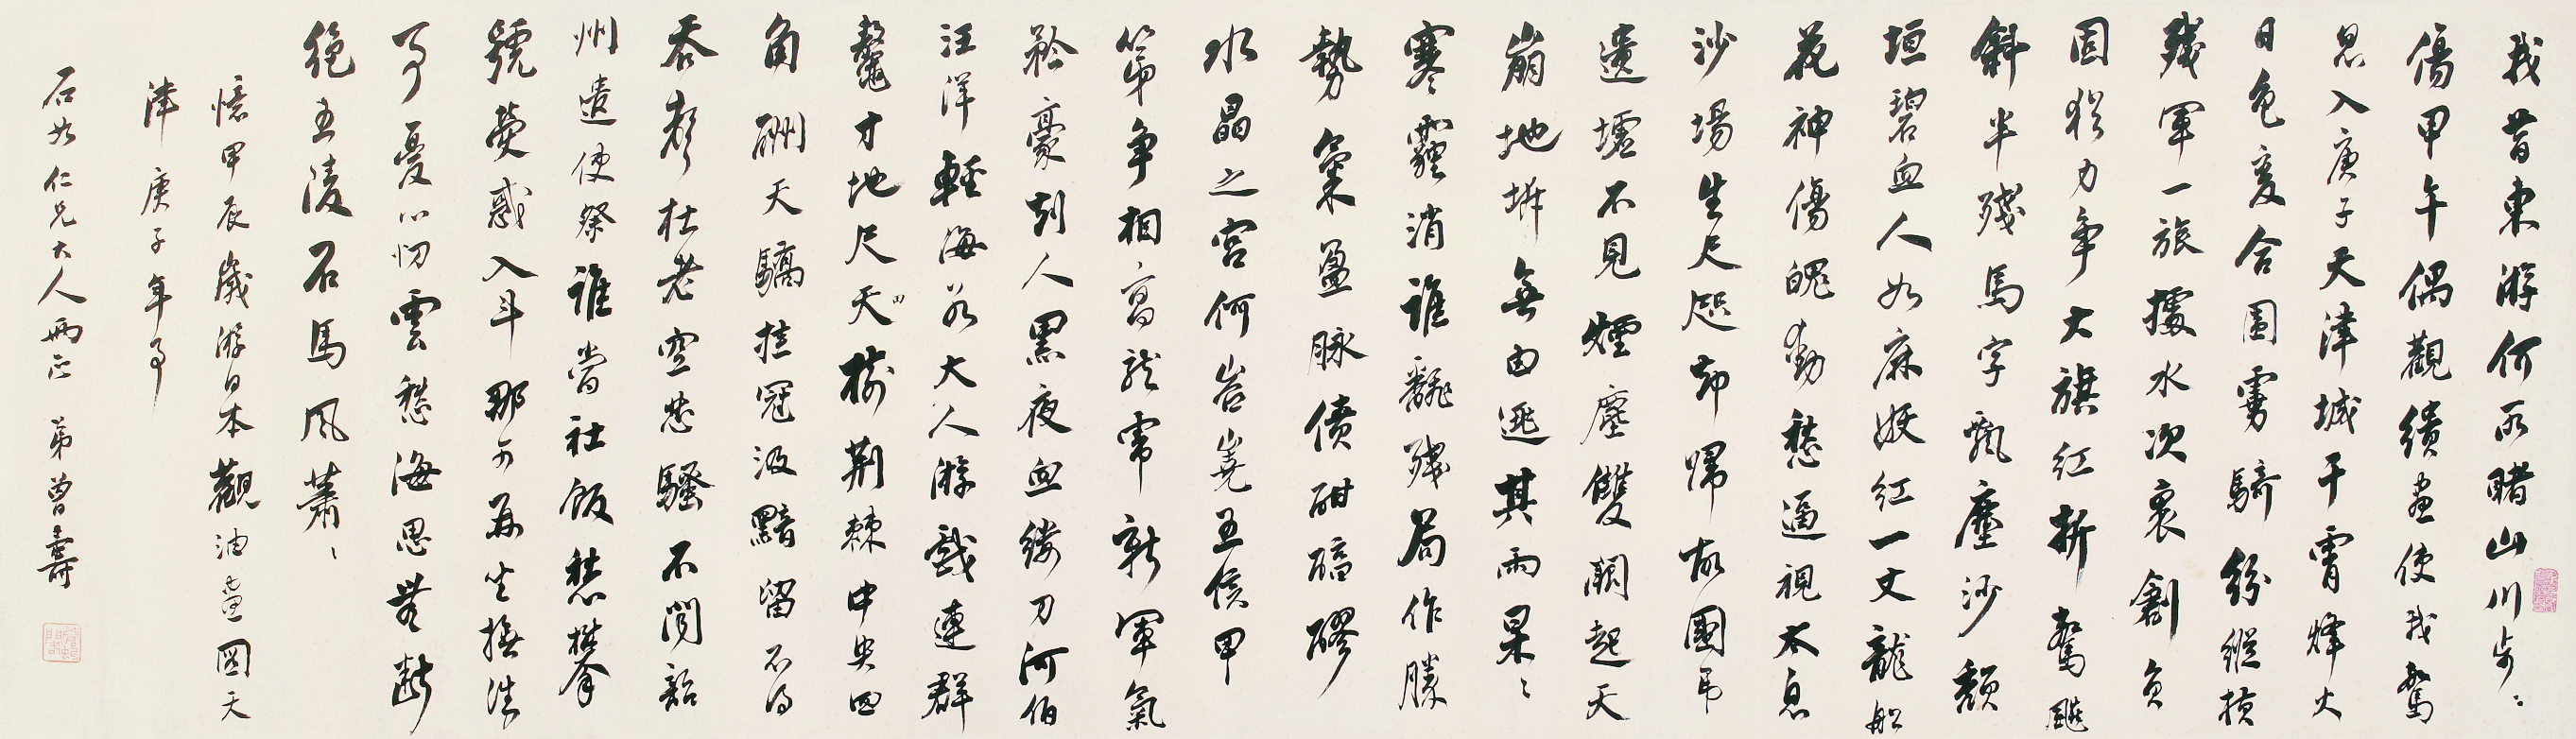 我昔東游何所睹山川步々
傷甲午偶觀繢畫使我驚
思入庚子天津城干霄烽火
日色変合圍雰騎紛縱橫
殘軍一旅據水次裹創負
固猶力爭大旗紅折驚飈
斜半殘馬字飄塵沙頹
垣碧血人如麻妖紅一丈龍船
花神傷魄動愁逼視太息
沙場生尺咫却歸故國弔
遺墟不見煙塵雙闕起天
崩地坼無由逃其雨杲々
寒霾消誰翻殘局作勝
勢氣盈脉僨酣醹醪
水晶之宮何岧嶢王侯甲
第爭相高龍帶新軍氣
矜豪刲人黑夜血縷刀河伯
汪洋輕海若大人游戲連群
鼇寸地尺天樹荊棘中央四
角酬天驕挂冠汲黯留不得
吞聲杜老空悲騷不聞韶
州遣使祭誰嘗社飯愁攀
號熒惑入斗那可再坐撫法
事憂心忉雲愁海思無斷
絕五陵石馬風蕭々
憶甲辰歲游日本觀油畫圖天
津庚子年事
石如仁兄大人兩正 弟曾壽